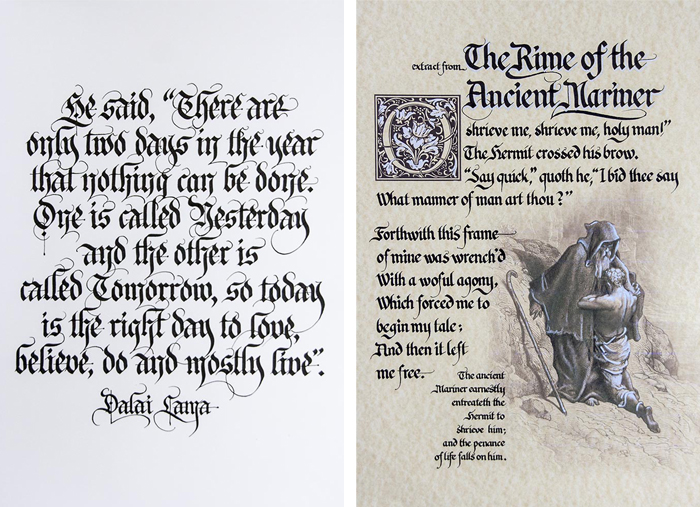 He said, “There are
only two days in the year
that nothing can be done.
One is called Yesterday
and the other is
called Tomorrow, so today
is the right day to love,
believe, do and mostly live”.
Dalai Lama
extract from The Rime of the
Ancient Mariner
O shrieve me, shrieve me, holy man!”
The Hermit crossed his brow.
“Say quick,” quoth he, “I bid thee say
What manner of man art thou?”
Forthwith this frame
of mine was wrench'd
With a woful agony,
Which forced me to
begin my tale;
And then it left
me free.
The ancient
Mariner earnestly
entreateth the
Hermit to
shrieve him;
and the penance
of life falls on him.